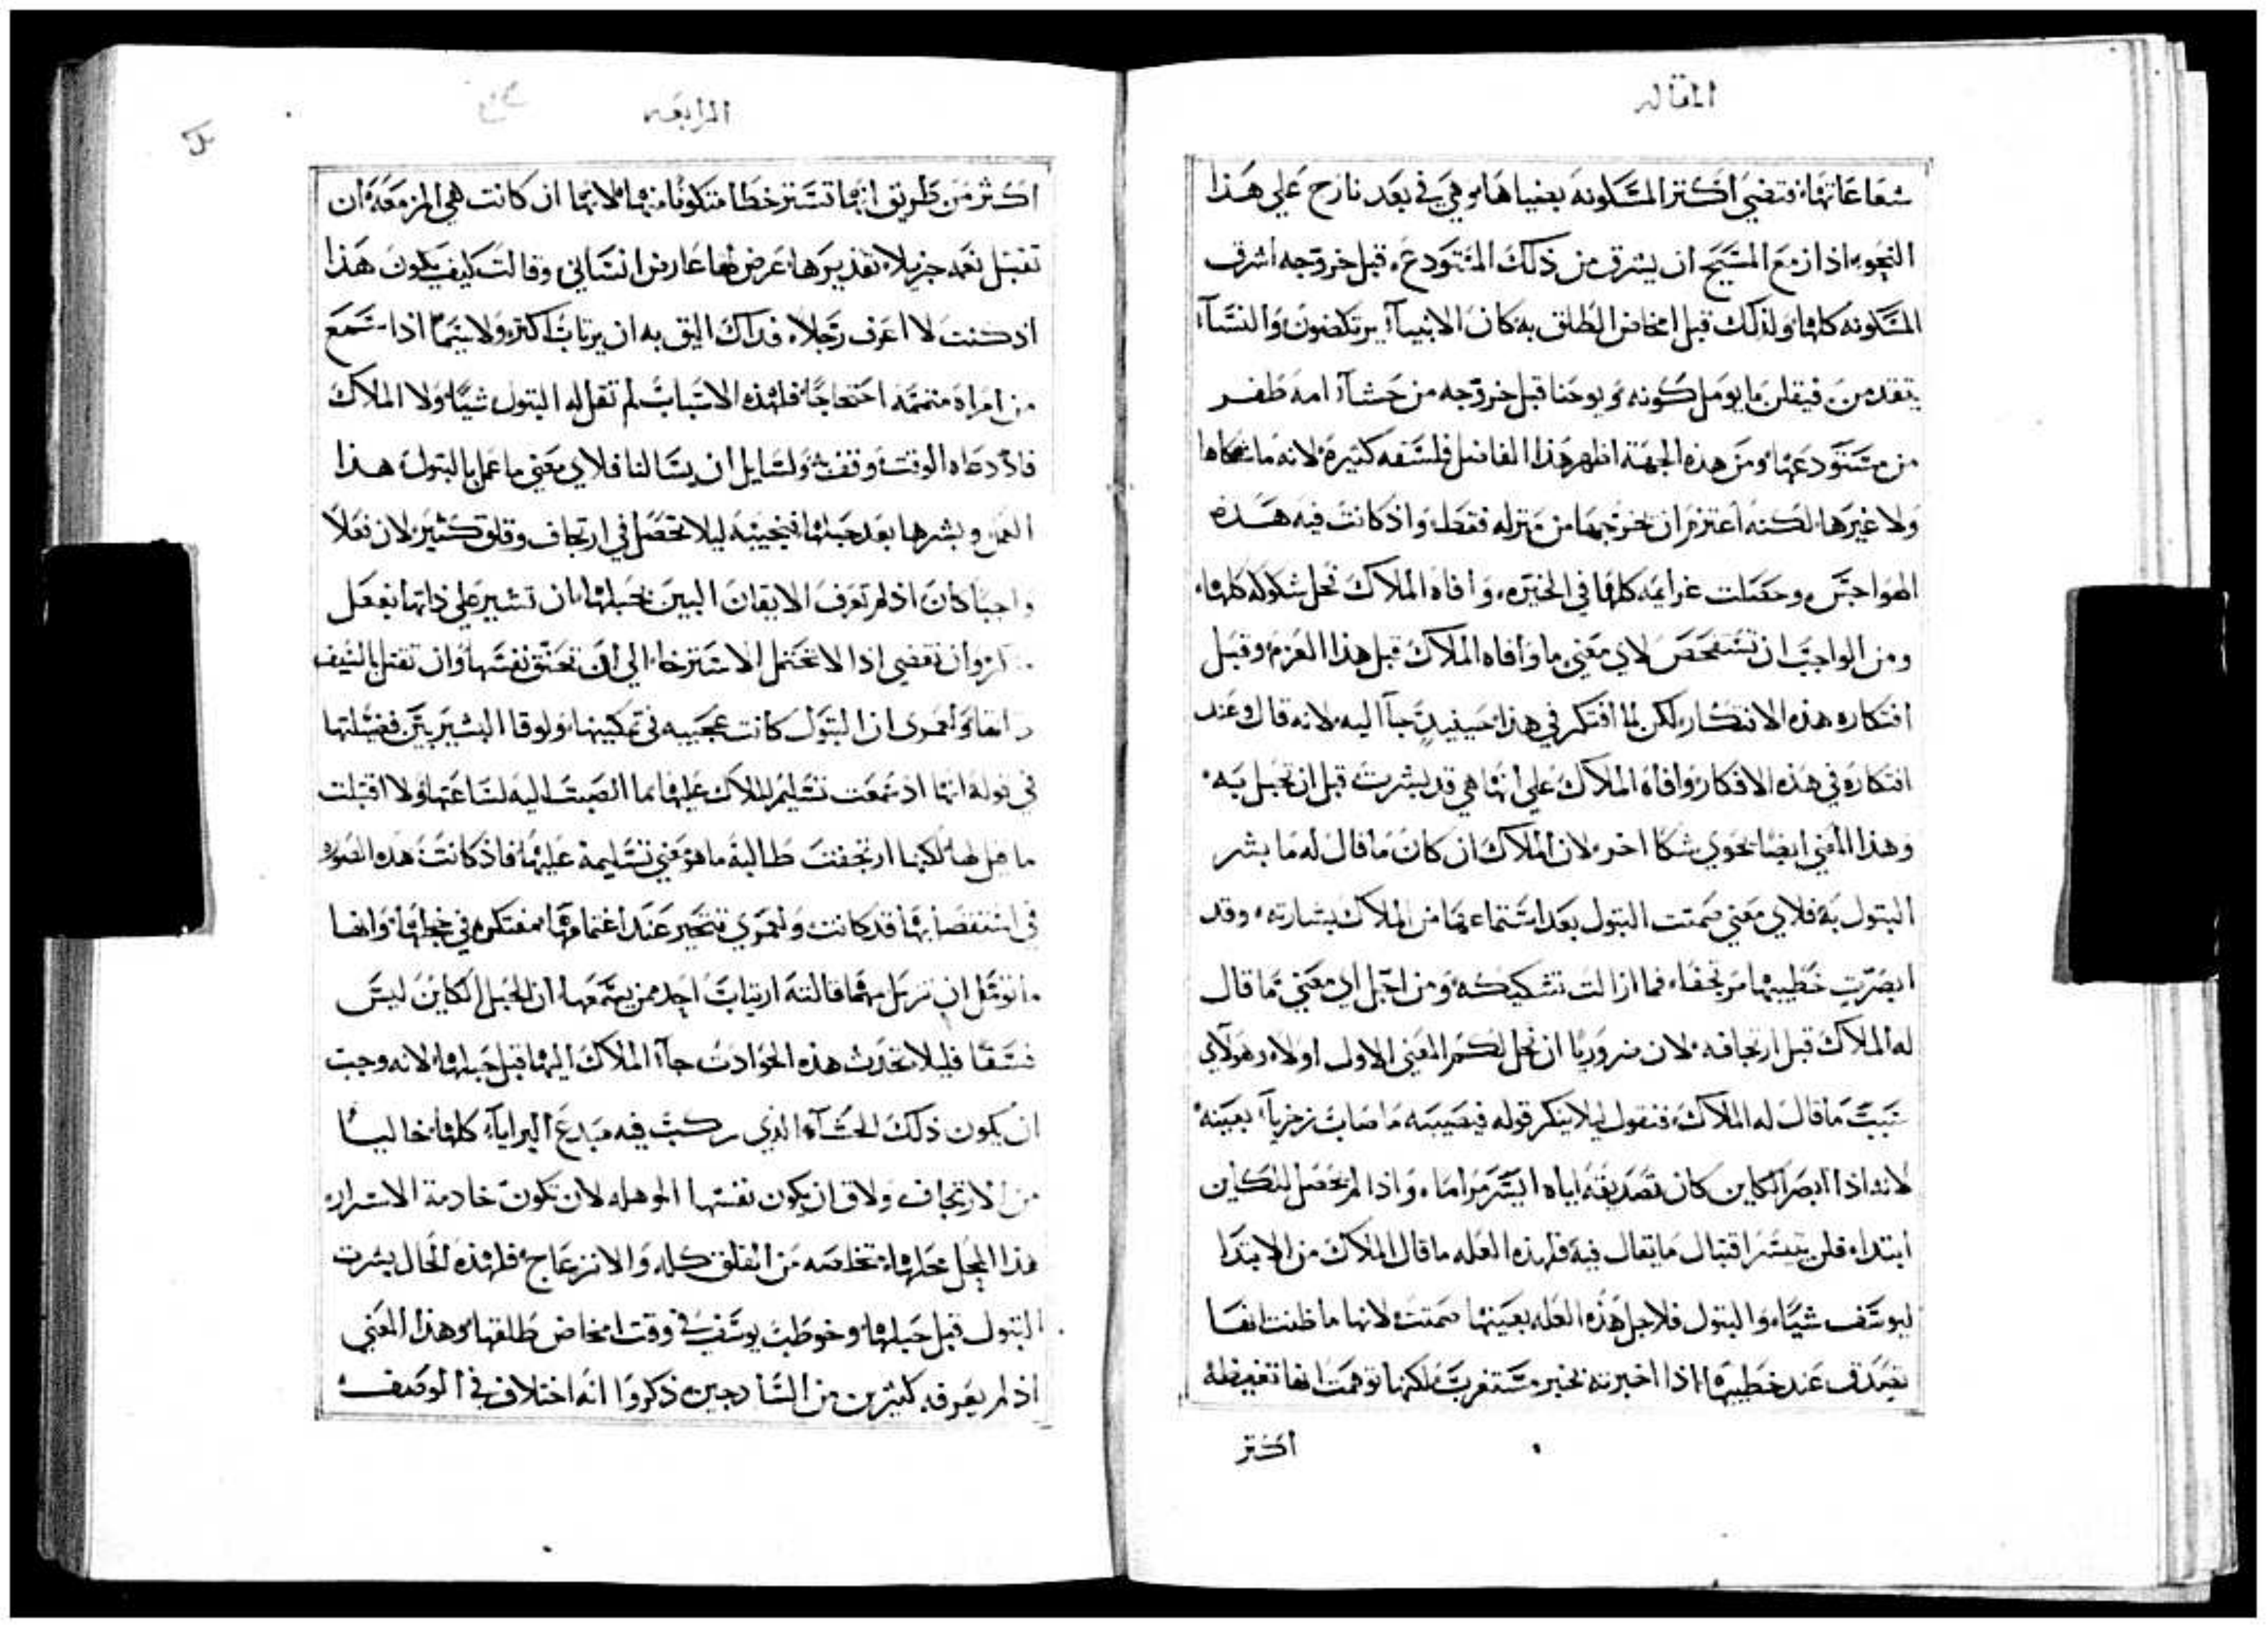 المقاله
شعاعاتها فتضي اكتر المسكونه بضياها وهي في بعد نازح علي هذا
النحو اذ ازمع المسيح ان يشرق من ذلك المستودع قبل خروجه اشرق
المسكونه كلها ولذلك قبل امخاض الطلق به كان الانبيآء يرتكضون والنسآء
يتقدمن فيقلن ما يومل كونه ويوحنا قبل خروجه من حشآء امه طفر
من مستودعها ومن هذه الجهة اظهر هذا الفاضل فلسفه كتيرة لانه ما شكاها
ولا غيرها لكنه اعتزم ان يخرجها من منزله فقط واذ كانت فيه هذه
الهواجس وحصلت غرايمه كلها في الحيره وافاه الملاك تحل شكوله كلها
ومن الواجب ان نستفحص لاي معني ما وافاه الملاك قبل هذا العزم وقبل
افتكاره هذه الافتكار لكن لما افتكر في هذا حينيدٍ جآ اليه لانه قال وعند
افتكاره في هذه الافكار وافاه الملاك علي انها هي قد بشرت قبل ان تحبل به
وهذا المعني ايضا يحوي شكا اخر لان الملاك ان كان ما قال له ما بشر
البتول به فلاي معني صمتت البتول بعد استماعها من الملاك بشارته وقد
ابصرت خطيبها مرتجفا فما ازالت تشكيكه ومن اجل اي معني ما قال
له الملاك قبل ارتجافه لان ضروريا ان نحل لكم المعني الاول اولا ولاي
سبب ما قال له الملاك فنقول ليلا ينكر قوله فيصيبه ما صاب زخريآ بعينه
لانه اذا ابصر الكاين كان تصديقه اياه ايسر مراما واذا لم يحصل للكاين
ابتداء فلن يتيسر اقتبال ما يقال فيه فلهذه العله ما قال الملاك من الابتدا
ليوسف شيا والبتول فلاجل هذه العله بعينها صمتت لانها ما ظنت انها
تصدق عند خطيبها اذا اخبرته بخبر مستغرب لكنها توهمت انها تغيظه
اكتر
الرابعه
اكثر من طريق انها تستر خطا متكونا منها لانها ان كانت هي المزمعه ان
تقبل نعمه جزيلا تقديرها عرض لها عارض انساني وقالت كيف يكون هذا
اذ كنت لا اعرف رجلا فذاك اليق به ان يرتاب اكتر ولا سيما اذا سمع
من امراة متهمه احتجاجا فلهذه الاسباب لم تقل له البتول شيا ولا الملاك
فاذ دعاه الوقت وقف ولسايل ان يسالنا فلاي معني ما عمل بالبتول هذا
العمل وبشرها بعد حبلها فنجيبه ليلا تحصل في ارتجاف وقلق كثير لان فعلا
واجبا كان اذ لم تعرف الايقان البين بحبلها ان تشير علي ذاتها بفعل
وان تفضي اذا لا تحتمل الاسترخا الي ان تخنق نفسها وان تقتل بالسيف
ذاتها ولعمري ان البتول كانت عجيبه في تمكينها ولوقا البشير بين فضيلتها
في قوله انها اذ سمعت تسليم الملاك عليها ما انصبت اليه لساعتها ولا اقتبلت
ما قيل لها لكنها ارتجفت طالبة ما هو معني تسليمه عليها فاذ كانت هذه الصوره
في استقصايها قد كانت ولعمري تتحير عند اغتمامها مفتكره في خجلها وانها
ما توقع ان تزيل مهما قالته ارتياب احد ممن يسمعها ان الحبل الكاين ليس
فسقا فليلا تحدث هذه الحوادث جآء الملاك اليها قبل حبلها لانه وجب
ان يكون ذلك الحشآء الذي ركب فيه مبدع البرايآ كلها خاليا
من الارتجاف ولاق ان يكون نفسها الموهله لان تكون خادمة الاسرار
هذا المحل محلها متخلصه من القلق كله والانزعاج فلهذه الحال بشرت
البتول قبل حبلها وخوطب يوسف في وقت امخاض طلقها وهذا المعني
اذ لم يعرفه كثيرين من السادجين ذكروا انه اختلاف في الوصف